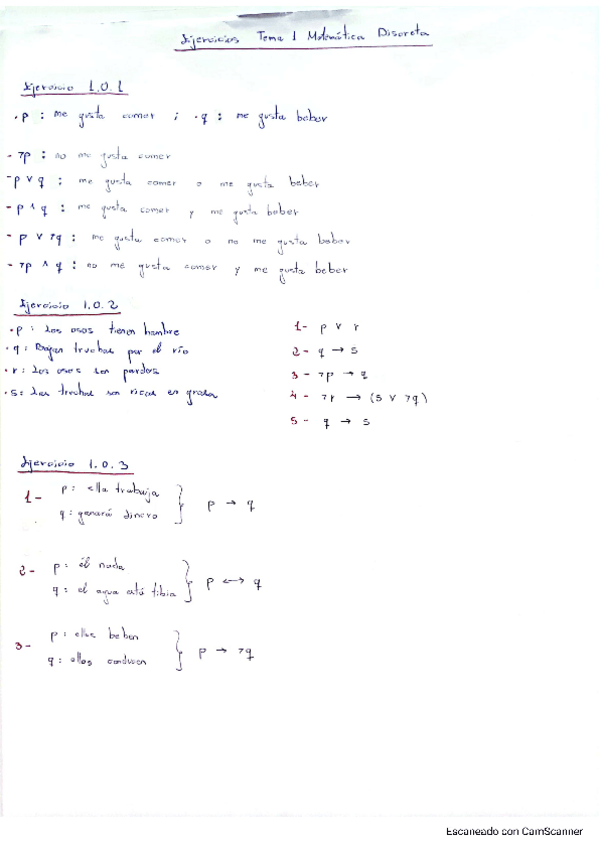 Ejercicios Tema 1 Matemática Discreta
Ejercicio 1.0.1
· p : me gusta comer ; · q : me gusta beber
- ¬p : no me gusta comer
- p ∨ q : me gusta comer o me gusta beber
- p ∧ q : me gusta comer y me gusta beber
- p ∨ ¬q : me gusta comer o no me gusta beber
- ¬p ∧ q : no me gusta comer y me gusta beber
Ejercicio 1.0.2
· p : Los osos tienen hambre
· q : Bajan truchas por el río
· r : Los osos son pardos
· s : Las truchas son ricas en grasa
1- p ∨ r
2- q → s
3- ¬p → q
4- ¬r → (s ∨ ¬q)
5- q → s
Ejercicio 1.0.3
1- p : ella trabaja
q : ganará dinero
p → q
2- p : él nada
q : el agua está tibia
p ↔ q
3- p : ellos beben
q : ellos conducen
p → ¬q
Escaneado con CamScanner